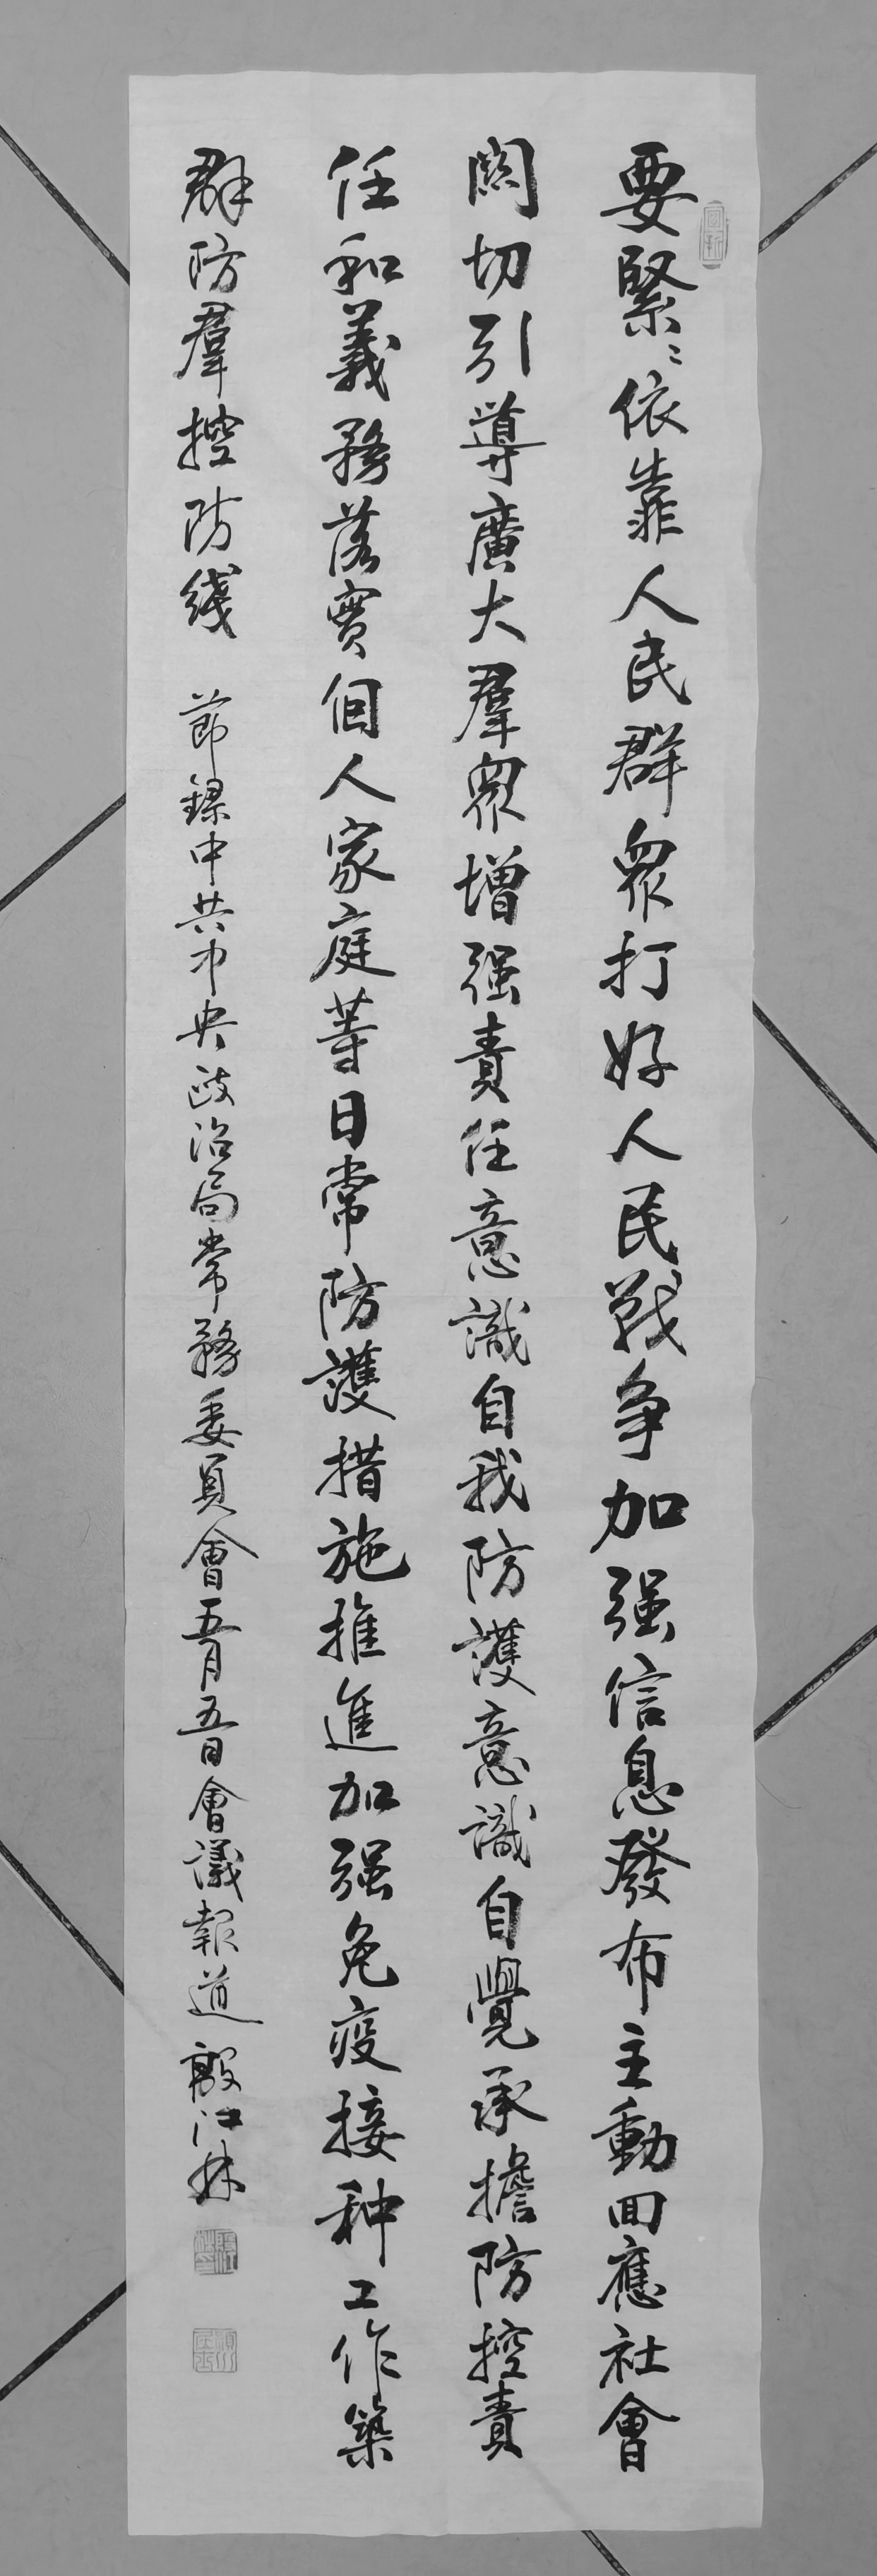 要緊〻依靠人民群眾打好人民戰争加强信息發布主動回應社會
關切引導廣大羣眾增强責任意識自我防護意識自覺承擔防控責
任和義務落實個人家庭等日常防護措施推進加强免疫接种工作築
群防羣控防綫 節錄中共中央政治局常務委員會五月五日會議報道 殷江林